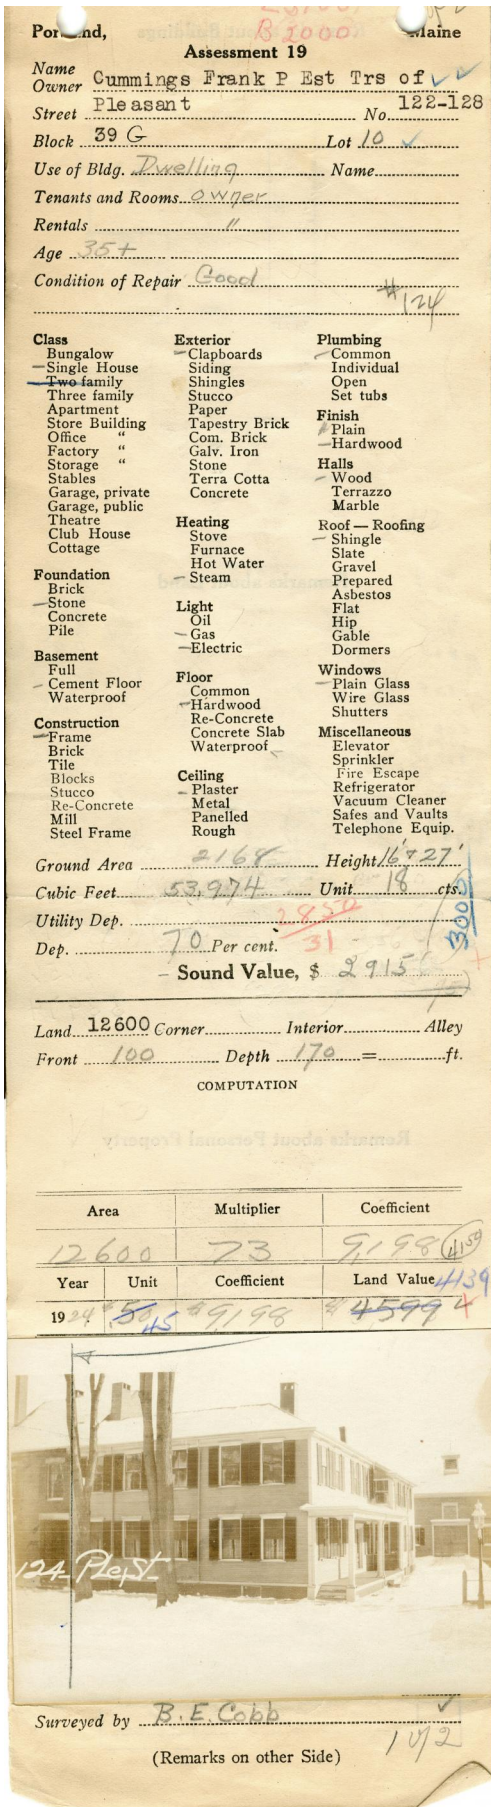 B 2000
Portland, Maine
Assessment 19
Name
Owner Cummings Frank P Est Trs of
Street Pleasant No. 122-128
Block 39 G Lot 10
Use of Bldg. Dwelling Name
Tenants and Rooms owner
Rentals "
Age 35+
Condition of Repair Good
#124
Class
Bungalow
Single House
Two family
Three family
Apartment
Store Building
Office "
Factory "
Storage "
Stables
Garage, private
Garage, public
Theatre
Club House
Cottage
Foundation
Brick
Stone
Concrete
Pile
Basement
Full
Cement Floor
Waterproof
Construction
Frame
Brick
Tile
Blocks
Stucco
Re-Concrete
Mill
Steel Frame
Exterior
Clapboards
Siding
Shingles
Stucco
Paper
Tapestry Brick
Com. Brick
Galv. Iron
Stone
Terra Cotta
Concrete
Heating
Stove
Furnace
Hot Water
Steam
Light
Oil
Gas
Electric
Floor
Common
Hardwood
Re-Concrete
Concrete Slab
Waterproof
Ceiling
Plaster
Metal
Panelled
Rough
Plumbing
Common
Individual
Open
Set tubs
Finish
Plain
Hardwood
Halls
Wood
Terrazzo
Marble
Roof — Roofing
Shingle
Slate
Gravel
Prepared
Asbestos
Flat
Hip
Gable
Dormers
Windows
Plain Glass
Wire Glass
Shutters
Miscellaneous
Elevator
Sprinkler
Fire Escape
Refrigerator
Vacuum Cleaner
Safes and Vaults
Telephone Equip.
Ground Area 2168 Height 16' & 27'
Cubic Feet 53,974 Unit 18 cts.
Utility Dep. 2850
3000
Dep. 70 Per cent. 31
Sound Value, $ 2915
Land 12600 Corner Interior Alley
Front 100 Depth 170 = ft.
COMPUTATION
Area Multiplier Coefficient
12600 73 9,198
Year Unit Coefficient Land Value 4139
1924 .50 45 $9,198 $4599
124 Ple St.
Surveyed by B. E. Cobb
(Remarks on other Side)